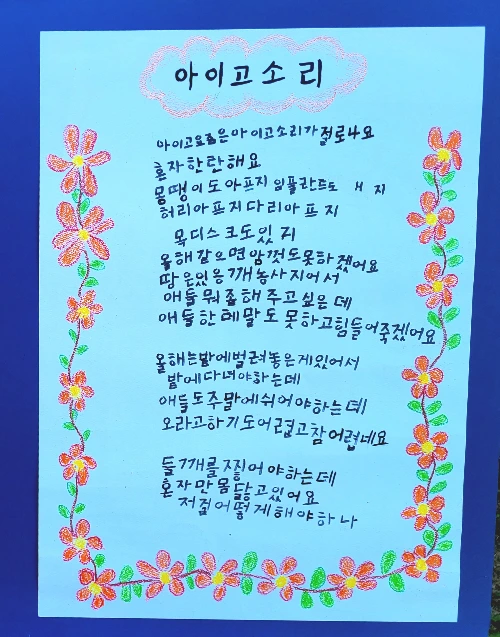 아이고소리
아이고요즘은아이고소리가절로나요
혼자한란해요
몸땡이도아프지임플란트도 H지
허리아프지다리아프지
목디스크도있지
올해같으면암것도못하겠어요
땀은있응개농사지어서
애들뭐좀해주고싶은데
애들한테말도못하고힘들어죽겠어요
올해는밭에벌려놓은게있어서
밭에다녀야하는데
애들도주말에쉬어야하는데
오라고하기도어렵고참어렵네요
들개를 찧어야하는데
혼자만몸닳고있어요
저걸어떻게해야하나